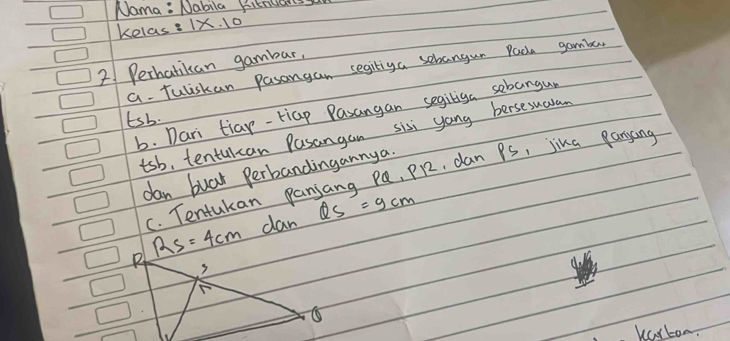 Nama : Nabila
Kelas : IX.10
7. Perhatikan gambar,
a. Tuliskan Pasangan segitiga sebangun Pada gambar
tsb.
b. Dari tiap-tiap Pasangan segitiga sebangun
tsb, tentukan Pasangan sisi yang bersesuaian
dan buat Perbandingannya.
c. Tentukan panjang PQ, PR, dan PS, jika panjang
RS = 4cm dan QS = 9cm
R
S
Q
karton.